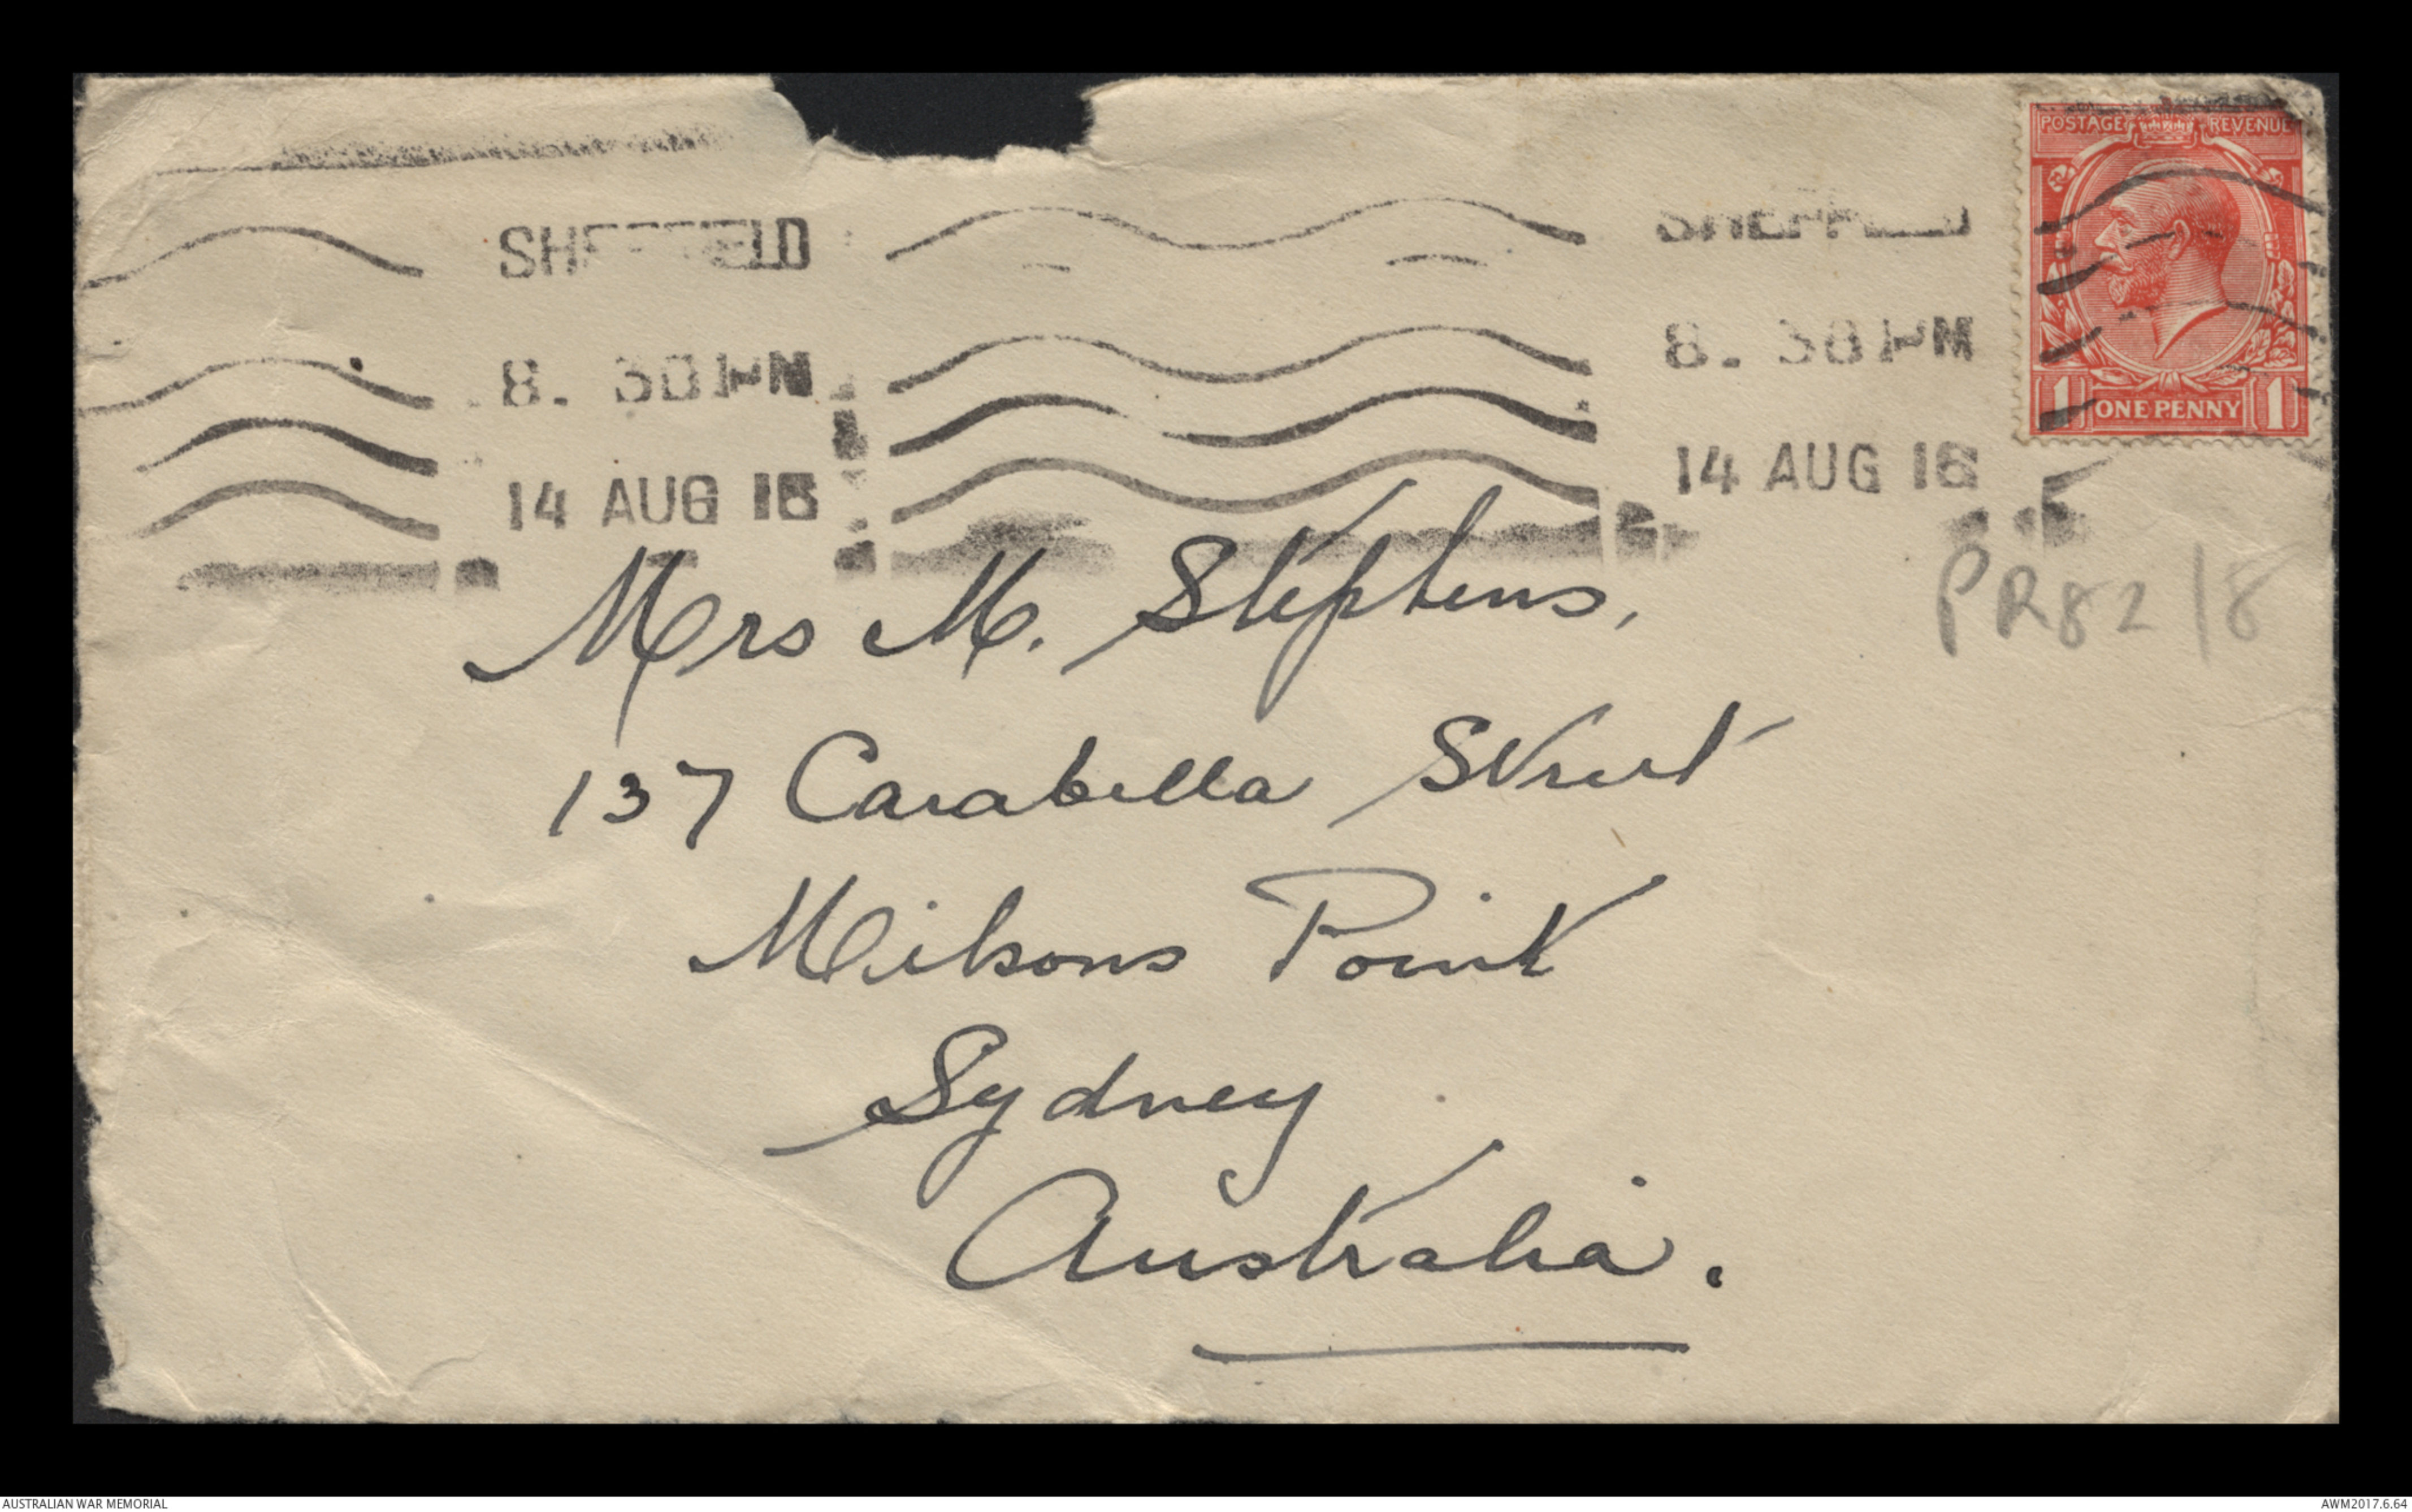 POSTAGE REVENUE
SHEFFIELD
8. 30 PM
14 AUG 16
SHEFFIELD
8. 30 PM
14 AUG 16
1 ONE PENNY 1
PR82 18
Mrs M. Stephens,
137 Carabella Street
Milsons Point
Sydney
Australia.
AUSTRALIAN WAR MEMORIAL
AWM2017.6.64